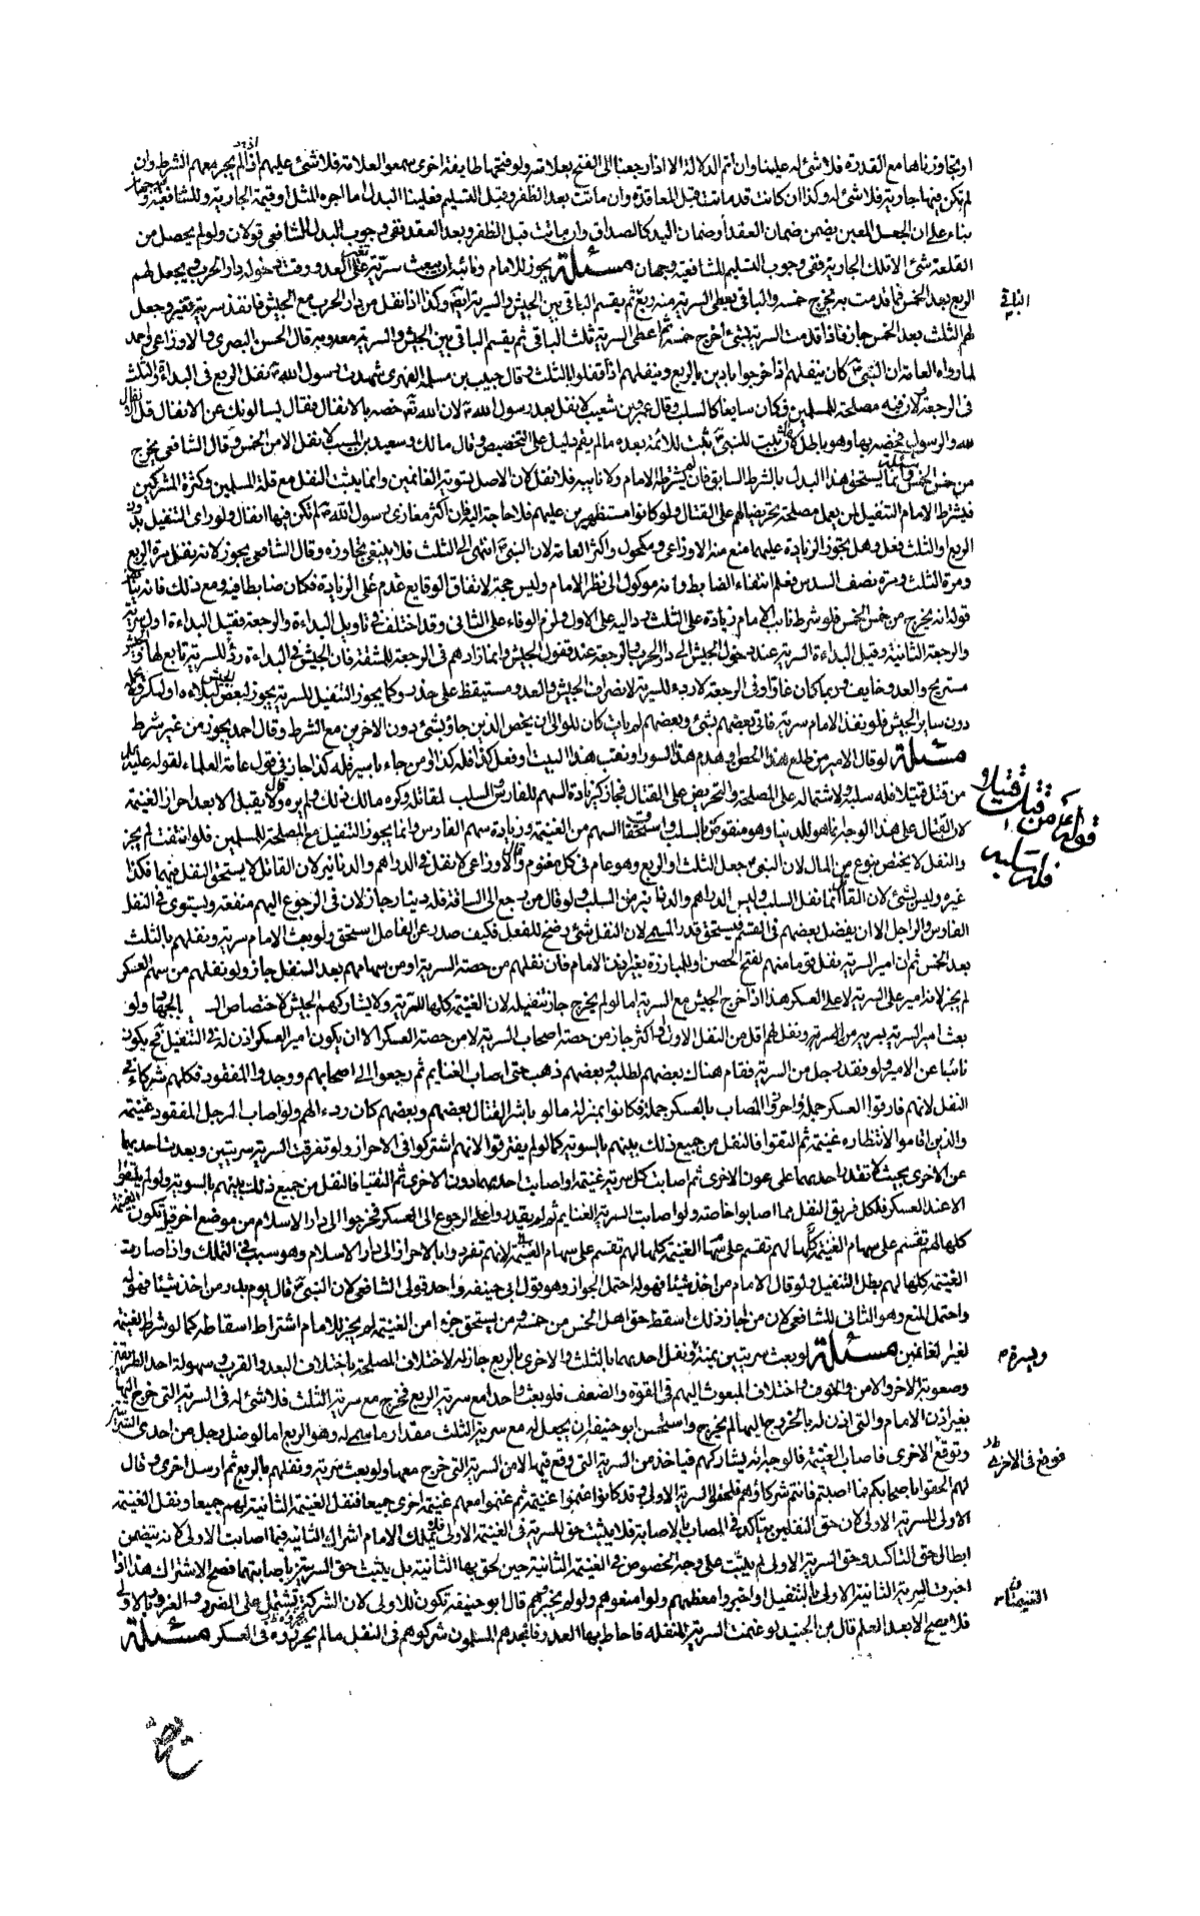 او تجاوزناها مع القدرة فلا شئ له علينا وان تم الدلالة الا اذا رجعنا الى الفتح بعلامته ولو فتحها طايفة اخرى سمعوا العلامة فلا شئ عليهم اذا لم يجر معهم الشرط وان
لم تكن فيها جارية فلا شئ له وكذا ان كانت قد ماتت قبل المعاقدة وان ماتت بعد الظفر وقبل التسليم فعلينا البدل اما اجرة المثل او قيمة الجارية وللشافعية وجهان
بناء على ان الجعل المعين يضمن ضمان العقد او ضمان اليد كالصداق وان ماتت قبل الظفر وبعد العقد ففي وجوب البدل للشافعي قولان ولو لم يحصل من
القلعة شئ الا تلك الجارية ففي وجوب التسليم للشافعية وجهان مسئلة يجوز للامام ونائبه ان يبعث سرية تغير على العدو وقت دخوله دار الحرب ويجعل لهم
الربع بعد الخمس فما قدمت به يخرج خمسه والباقي يعطى السرية منه ربع ثم يقسم الباقي بين الجيش والسرية ايضا وكذا اذا نفل من دار الحرب مع الجيش فانفذ سرية تغير وجعل
لهم الثلث بعد الخمس جاز فاذا قدمت السرية بشئ اخرج خمسه ثم اعطى السرية ثلث الباقي ثم يقسم الباقي بين الجيش والسرية معه وبه قال الحسن البصري والاوزاعي واحمد
لما رواه العامة ان النبي كان ينفلهم اذا خرجوا بادين بالربع وينفلهم اذا قفلوا بالثلث وقال حبيب بن مسلمة الفهري شهدت رسول الله نفل الربع في البداءة والثلث
في الرجعة ولان فيه مصلحة للمسلمين فكان سايغا كالسلب وقال عمرو بن شعيب لا نفل بعد رسول الله لان الله تعالى خصه بالانفال فقال يسالونك عن الانفال قل الانفال
لله والرسول فخصه بها وهو باطل لان ما ثبت للنبي ثبت للائمة بعده ما لم يقم دليل على التخصيص وقال مالك وسعيد بن المسيب لا نفل الا من الخمس وقال الشافعي يخرج
من خمس الخمس مسئلة وانما يستحق هذا البدل بالشرط السابق فان لم يشترطه الامام ولا نايبه فلا نفل لان الاصل تسوية الغانمين وانما يثبت النفل مع قلة المسلمين وكثرة المشركين
فيشترط الامام التنفيل لمن يعمل مصلحة تحريضا لهم على القتال ولو كانوا مستظهرين عليهم فلا حاجة اليه فان اكثر مغازي رسول الله لم تكن فيها انفال ولو راى التنفيل بدون
الربع او الثلث فعل وهل يجوز الزيادة عليهما منع منه الاوزاعي ومكحول واكثر العامة لان النبي انتهى الى الثلث فلا ينبغي تجاوزه وقال الشافعي يجوز لانه نفل مرة الربع
ومرة الثلث ومرة نصف السدس فعلم انتفاء الضابط وانه موكول الى نظر الامام وليس حجة لاتفاق الوقايع عدم على الزيادة فكان ضابطا فيه ومع ذلك فانه ينافي
قوله انه يخرج من خمس الخمس فلو شرط نائب الامام زيادة على الثلث رد اليه على الاول ولزم الوفاء على الثاني وقد اختلف في تاويل البداءة والرجعة فقيل البداءة اول سرية
والرجعة الثانية وقيل البداءة السرية عند دخول الجيش الى دار الحرب والرجعة عند قفول الجيش وانما زادهم في الرجعة للمشقة فان الجيش في البداءة ردؤ للسرية تابع لها والجيش
مستريح والعدو خايف وربما كان غافلا وفي الرجعة لا ردء للسرية لانصراف الجيش والعدو مستيقظ على حذر وكما يجوز التنفيل للسرية يجوز لبعض الجيش لبلائه او لمكروه تحمله
دون ساير الجيش فلو نفذ الامام سرية فاتى بعضهم بشئ وبعضهم لم يات كان للوالي ان يخص الذين جاؤ بشئ دون الاخرين مع الشرط وقال احمد يجوز من غير شرط
مسئلة لو قال الامير من طلع هذا الحصن او هدم هذا السور او نقب هذا البيت او فعل كذا فله كذا او من جاء باسير فله كذا جاز في قول عامة العلماء لقوله عليه السلام
من قتل قتيلا فله سلبه ولاشتماله على المصلحة والتحريض على القتال فجاز كزيادة السهم للفارس والسلب لمقاتله وكره مالك ذلك ولم يره وقال لا يقبل الا بعد احراز الغنيمة
لان القتال على هذا الوجه انما هو للدنيا وهو منقوض بالسلب واستحقاق السهم من الغنيمة وزيادة سهم الفارس وانما يجوز التنفيل مع المصلحة للمسلمين فلو انتفت لم يجز
والنفل لا يختص بنوع من المال لان النبي جعل الثلث او الربع وهو عام في كل مغنوم وقال الاوزاعي لا نفل في الدراهم والدنانير لان القاتل لا يستحق النفل فيهما فكذا
غيره وليس بشئ لان القاتل انما نفل السلب وليس الدراهم والدنانير من السلب ولو قال من رجع الى الساقة فله دينار جاز لان في الرجوع اليهم منفعة ويستوي في النفل
الفارس والراجل الا ان يفضل بعضهم في القسم فيستحق قدر المسمى لان النفل شئ رضخ للفعل فكيف صدر عن الفاعل استحق ولو بعث الامام سرية ونفلهم بالثلث
بعد الخمس ثم ان امير السرية نفل قوما منهم لفتح الحصن او للمبارزة بغير اذن الامام فان نفلهم من حصة السرية او من سهامهم بعد النفل جاز ولو نفلهم من سهم العسكر
لم يجز لانه امير على السرية لا على العسكر هذا اذا خرج الجيش مع السرية اما لو لم يخرج جاز تنفيله لان الغنيمة كلها للسرية ولا يشاركهم الجيش لاختصاص السـ بالجهاد ولو
بعث امير السرية سرية من السرية ونفل لهم اقل من النفل الاول او اكثر جاز من حصة اصحاب السرية لا من حصة العسكر الا ان يكون امير العسكر اذن له في التنفيل فح يكون
نائبا عن الامير ولو فقد رجل من السرية فقام هناك بعضهم لطلبه وبعضهم ذهب حتى اصاب الغنايم ثم رجعوا الى اصحابهم ووجدوا المفقود فكلهم شركاء في
النفل لانهم فارقوا العسكر جملة واحرزوا المصاب بالعسكر جملة فكانوا بمنزلة ما لو باشر القتال بعضهم وبعضهم كان ردءا لهم ولو اصاب الرجل المفقود غنيمة
والذين اقاموا لانتظاره غنيمة ثم التقوا فالنفل من جميع ذلك بينهم بالسوية كما لو لم يفترقوا لانهم اشتركوا في الاحراز ولو تفرقت السرية سريتين وبعدت احديهما
عن الاخرى بحيث لا تقدر احديهما على عون الاخرى ثم اصابت كل سرية غنيمة او اصابت احديهما دون الاخرى ثم التقيا فالنفل من جميع ذلك بينهم بالسوية ولو لم يلتقوا
الا عند العسكر فلكل فريق النفل مما اصابوا خاصة ولو اصابت السرية الغنايم ثم لم يقدروا على الرجوع الى العسكر فخرجوا الى دار الاسلام من موضع اخر قيل تكون الغنيمة
كلها لهم تقسم على سهام الغنيمة كلها لهم تقسم على سهام الغنيمة كلها لهم تقسم على سهام الغنيمة لانهم تفردوا بالاحراز الى دار الاسلام وهو سبب في التملك واذا صارت
الغنيمة كلها لهم بطل التنفيل ولو قال الامام من اخذ شيئا فهو له احتمل الجواز وهو قول ابي حنيفة واحد قولي الشافعي لان النبي قال يوم بدر من اخذ شيئا فهو له
واحتمل المنع وهو الثاني للشافعي لان من اجاز ذلك اسقط حق اهل الخمس من خمسه ومن يستحق جزء من الغنيمة لم يجز للامام اشتراط اسقاطه كما لو شرط الغنيمة
لغير الغانمين مسئلة لو بعث سريتين يمنة ونفل احديهما بالثلث والاخرى بالربع جاز له لاختلاف المصلحة باختلاف البعد والقرب وسهولة احد الطريقين
وصعوبة الاخر والامن والخوف واختلاف المبعوث اليهم في القوة والضعف فلو بعث واحدا مع سرية الربع فخرج مع سرية الثلث فلا شئ له في السرية التي خرج اليها
بغير اذن الامام والتي اذن له بالخروج اليها لم يخرج واستحسن ابو حنيفة ان يجعل له مع سرية الثلث مقدار ما سمى له وهو الربع اما لو ضل رجل من احدى السريتين
ووقع في الاخرى فاصاب الغنيمة فالوجه انه يشاركهم فياخذ من السرية التي وقع فيها لا من السرية التي خرج معها ولو بعث سرية ونفلهم بالربع ثم ارسل اخرى وقال
لهم الحقوا باصحابكم فما اصبتم فانتم شركاؤهم فلحقوا السرية الاولى وقد كانوا غنموا غنيمة ثم غنموا معهم غنيمة اخرى جميعا فنفل الغنيمة الثانية لهم جميعا ونفل الغنيمة
الاولى للسرية الاولى لان حق النفلين يتاكد في المصاب بالاصابة فلا يثبت حق للسرية في الغنيمة الاولى فلا يملك الامام اشراك الثانية فيما اصابت الاولى لانه يتضمن
ابطال حق التاكد وحق السرية الاولى لم يثبت على وجه الخصوص في الغنيمة الثانية حين لحق بها الثانية بل يثبت حق السريتين باصابتهما فصح الاشتراك هذا اذا
اخبرت السرية الثانية الاولى بالتنفيل او اخبروا معظمهم ولو امنعوهم ولو لم يخبروهم قال ابو حنيفة تكون للاولى لان الشركة تشتمل على الضرر والغرور بالاولى
فلا يصح الا بعد العلم قال ابن الجنيد لو غنمت السرية المنفلة فاحاط بها العدو فانجدهم المسلمون شركوهم في النفل ما لم يحرزوه في العسكر مسئلة
الباقي
قوله عم من قتل قتيلا
فله سلبه
ويسرة
فوقع في الاخرى